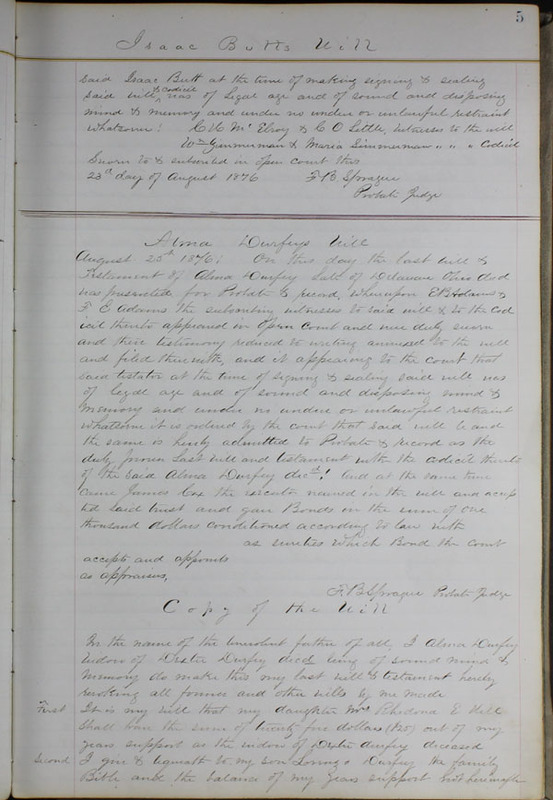 5
Isaac Butts Will
said Isaac Butt at the time of making signing & sealing
said will & codicil was of legal age and of sound and disposing
mind & memory and under no undue or unlawful restraint
whatsoever! C H Mc Elroy & C O Little, witnesses to the will
Wm Zimmerman & Maria Zimmerman " " " Codicil
Sworn to & subscribed in open Court this
23rd day of August 1876 F. B. Sprague
Probate Judge
Alma Durfeys Will
August 25th 1876: On this day the last will &
Testament of Alma Durfey late of Delaware Ohio decd
was presented for Probate & record, whereupon E B Adams &
F E Adams the subscribing witnesses to said will & to the Cod
icil thereto appeared in open Court and were duly sworn
and their testimony reduced to writing annexed to the will
and filed therewith, and it appearing to the court that
said testator at the time of signing & sealing said will was
of legal age and of sound and disposing mind &
memory and under no undue or unlawful restraint
whatsoever it is ordered by the court that said will be and
the same is hereby admitted to Probate & record as the
duly proven last will and testament with the codicil thereto
of the said Alma Durfey decd! And at the same time
came James Cox the executor named in the will and accep
ted said trust and gave Bonds in the sum of one
thousand dollars conditioned according to law with
as sureties which Bond the court
accepts and appoints
as appraisers,
F. B. Sprague Probate Judge
Copy of the Will
In the name of the benevolent father of all, I Alma Durfey
widow of Dexter Durfey decd being of sound mind &
memory do make this my last will & testament hereby
revoking all former and other wills by me made
First It is my will that my daughter Mrs Rhodona E Hill
shall have the sum of twenty five dollars ($25) out of my
years support as the widow of Dexter durfey deceased
Second I give & bequeath to my son Lorenzo Durfey the family
Bible and the balance of my years support not hereinafter